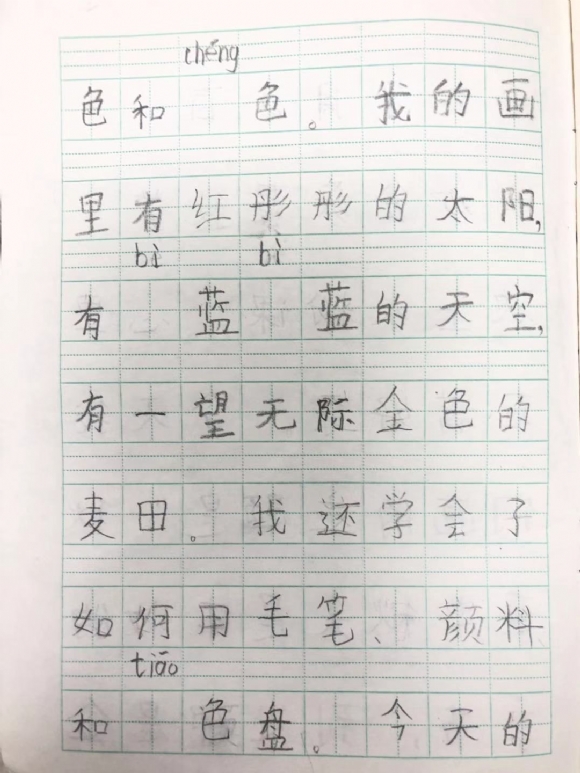 chéng
色和 色。我的画
里有红彤彤的太阳,
bì bì
有 蓝 蓝的天空,
有一望无际金色的
麦田。我还学会了
如何用毛笔、颜料
tiáo
和 色盘。今天的